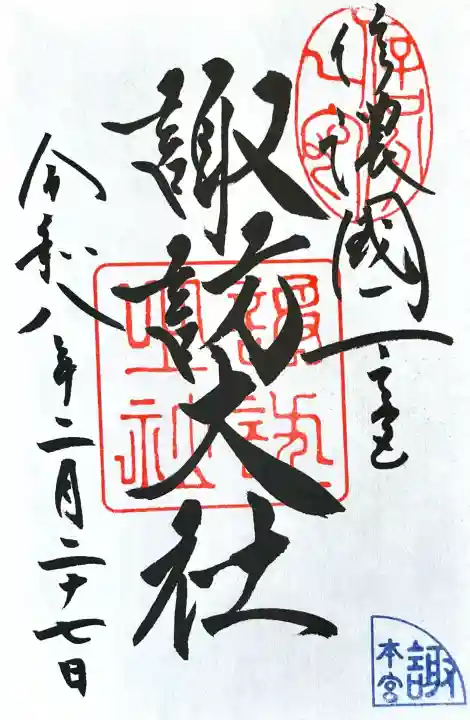 信濃國一之宮
諏訪大社
令和八年二月二十七日
諏訪
大社
諏
本宮